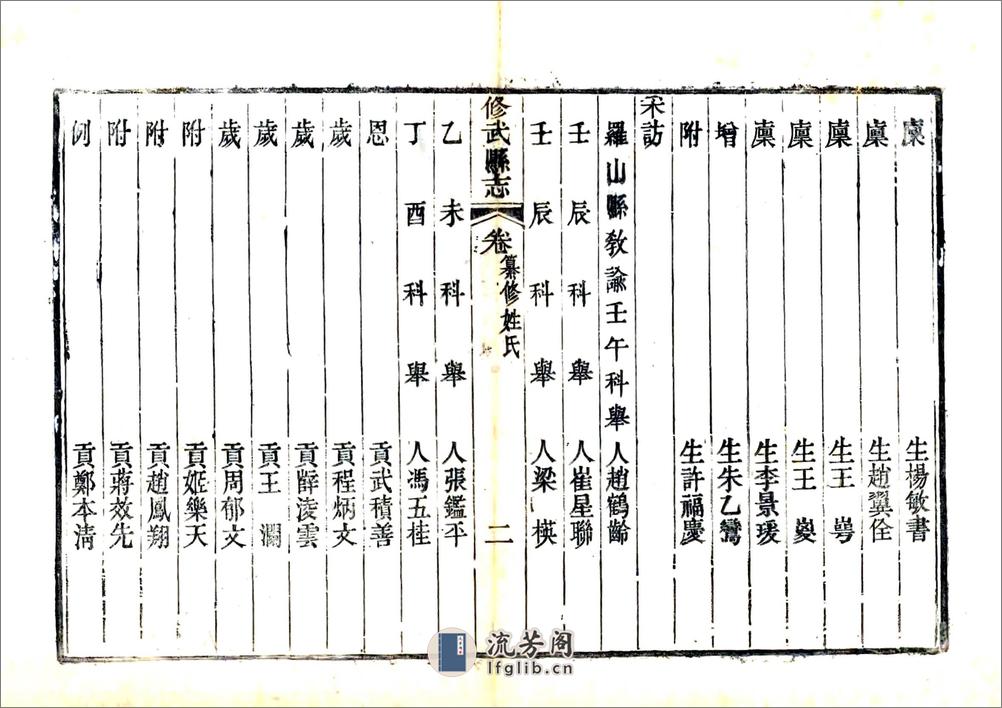 廩生楊敏書
廩生趙翼佺
廩生王崿
廩生王㚇
廩生李景瑗
增生朱乙鸞
附生許福慶
采訪
羅山縣教諭壬午科舉人趙鶴齡
壬辰科舉人崔星聯
壬辰科舉人梁横
修武縣志
卷
纂修姓氏
二
乙未科舉人張鑑平
丁酉科舉人馮五桂
恩貢武積善
歲貢程炳文
歲貢薛凌雲
歲貢王瀾
歲貢周郁文
附貢姬樂天
附貢趙鳳翔
附貢蔣效先
例貢鄭本清
流芳阁
lfglib.cn